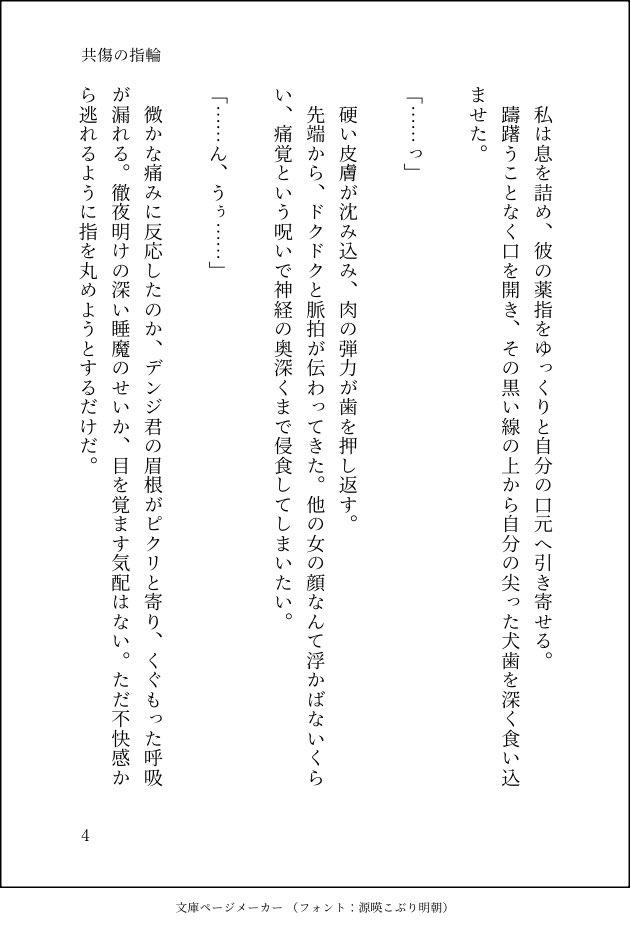 共傷の指輪
私は息を詰め、彼の薬指をゆっくりと自分の口元へ引き寄せる。
躊躇うことなく口を開き、その黒い線の上から自分の尖った犬歯を深く食い込
ませた。
「……っ」
硬い皮膚が沈み込み、肉の弾力が歯を押し返す。
先端から、ドクドクと脈拍が伝わってきた。他の女の顔なんて浮かばないくら
い、痛覚という呪いで神経の奥深くまで侵食してしまいたい。
「……ん、うぅ……」
微かな痛みに反応したのか、デンジ君の眉根がピクリと寄り、くぐもった呼吸
が漏れる。徹夜明けの深い睡魔のせいか、目を覚ます気配はない。ただ不快感か
ら逃れるように指を丸めようとするだけだ。
4
文庫ページメーカー（フォント：源暎こぶり明朝）